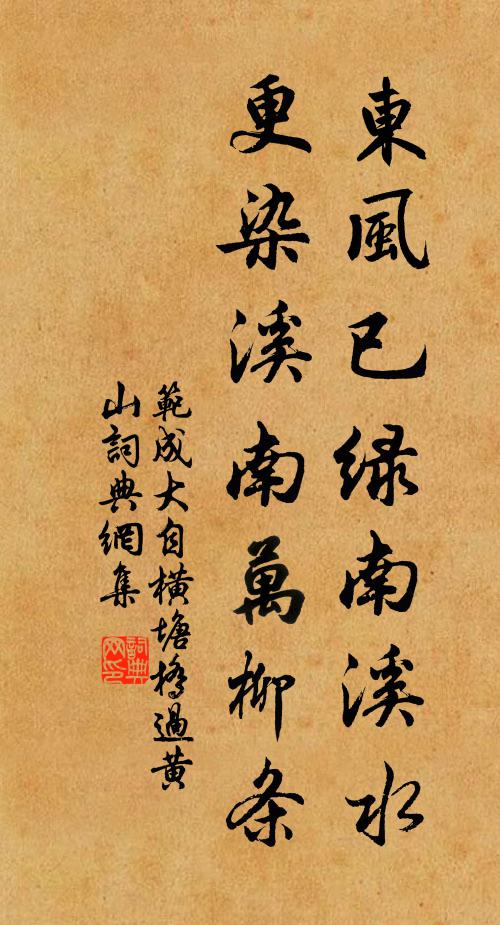 東風已緑南溪水
更染溪南萬柳条
範成大自横塘橋過黄
山詞典網集
詞典网印